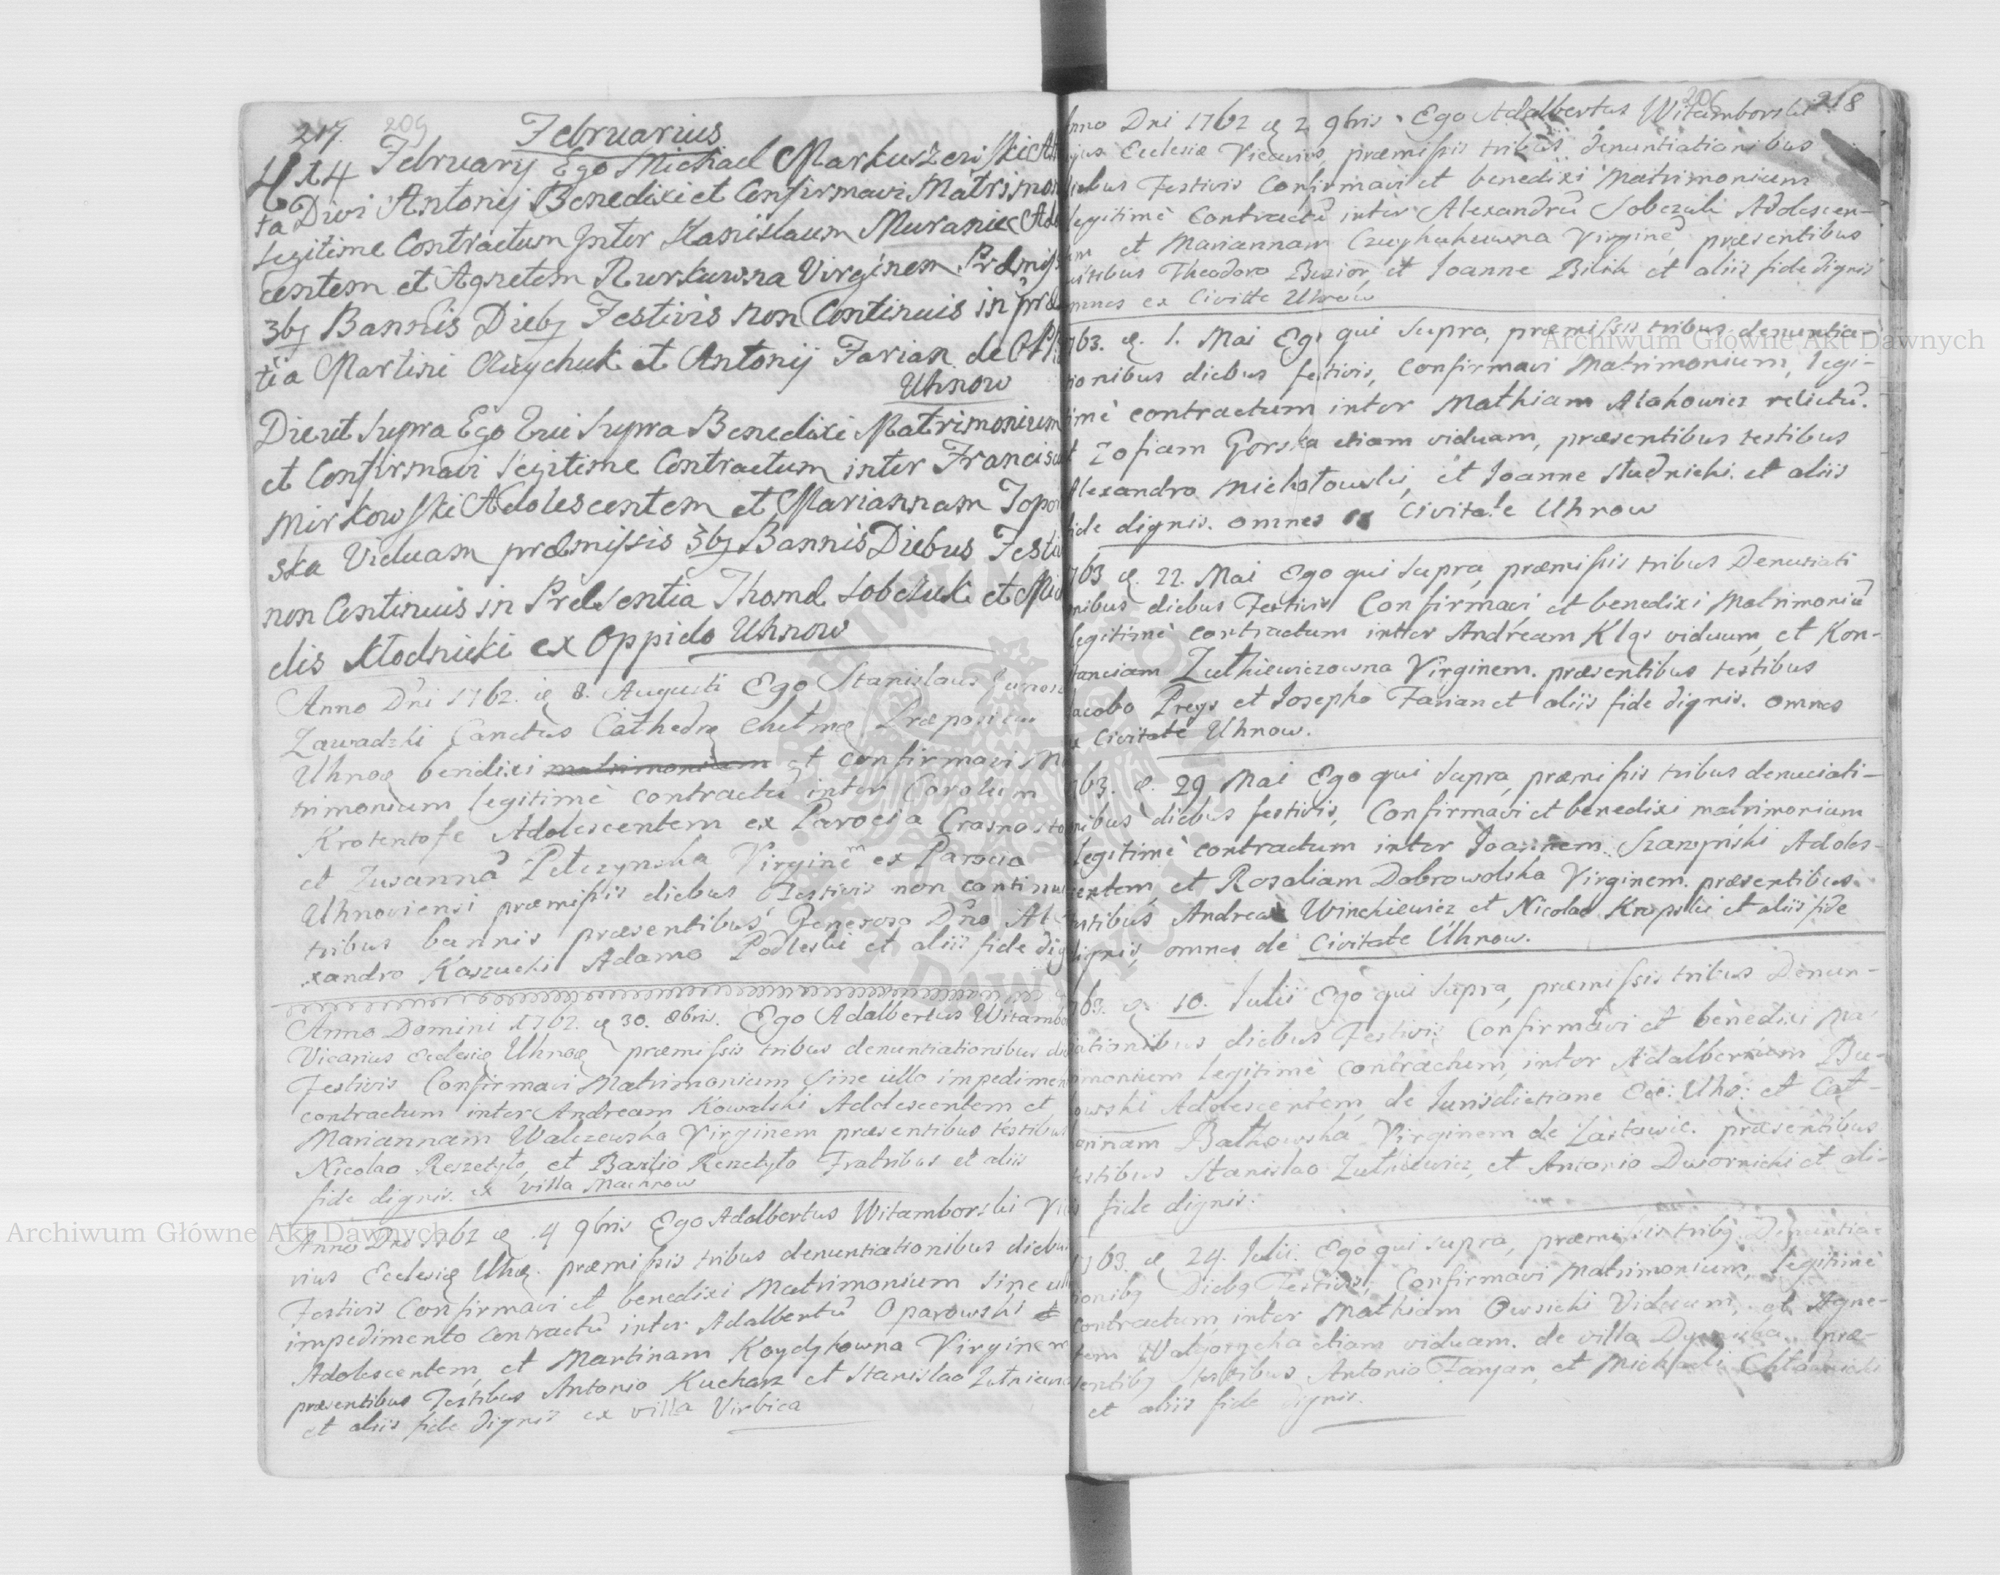 217. 209
Februarius
14 February Ego Michael Markuszewski
ta Divi Antonij Benedixi et Confirmavi Matrimon
Legitime Contractum Inter Stanislaum Muraniec Ado
centem et Agnetem Rurkuwna Virginem Præmiss
3bq Bannis Diebq Festivis non Continuis in præ
tia Martini et Antonij Farian de
Uhnow
Die ut Supra Ego Qui Supra Benedixi Matrimonium
et Confirmavi Legitime Contractum inter Francis
Mirkowski Adolescentem et Mariannam Topor
ska Viduam præmissis 3bq Bannis Diebus Festi
non Continuis in Presentia Thomæ Sobczuk et
elis Kłodnicki ex Oppido Uhnow
Anno Dni 1762. 8. Augusti Ego Stanislaus Junosz
Zawadzki Cathedræ Chelmæ Præpositus
Uhnoæ benedixi matrimonium et confirmavi Ma
trimonium legitimè contractũ inter Carolum
Krotentofe Adolescentem ex Parocia Crasnosta
et Zusannã Pełczynska Virginem ex Parocia
Uhnoviensi præmissis diebus Festivis non continu
tribus bannis præsentibus Generoso Dno Al
xandro Kaszucki Adamo Podleski et aliis fide dig
Anno Domini 1762. 30. 8bris. Ego Adalbertus Witambo
Vicarius Ecclesiæ Uhnoæ præmissis tribus denuntiationibus di
Festivis Confirmavi Matrimonium sine ullo impedimen
contractum inter Andream Kowalski Adolescentem et
Mariannam Walczewska Virginem præsentibus testibus
Nicolao Reszetyło, et Basilio Reszetyło Fratribus et aliis
fide dignis ex villa Machnow
Anno Dni 1762 4 9bris Ego Adalbertus Witamborski Vica
rius Ecclesiæ Uhnæ præmissis tribus denuntiationibus diebus
Festivis Confirmavi et benedixi Matrimonium sine ullo
impedimento contractũ inter Adalbertũ Oparowski et
Adolescentem, et Martinam Virginem
præsentibus Testibus Antonio Kucharz et Stanislao
et aliis fide dignis ex villa Virbica
206 218
nno Dni 1762 2 9bris Ego Adalbertus Witamborski
jus Ecclesiæ Vicarius, præmissis tribus denuntiationibus
diebus Festivis Confirmavi et benedixi Matrimonium
legitimè Contractũ inter Alexandrũ Sobczuk Adolescen-
et Mariannam Virginẽ præsentibus
testibus Theodoro et Ioanne Bilik et aliis fide dignis
omnes ex Civitte Uhnow
763. 1. Mai Ego qui supra, præmissis tribus denuntia-
tionibus diebus festivis, Confirmavi Matrimonium, legi-
timè contractum inter Mathiam Alahowicz relictũ.
t Zofiam Gorska etiam viduam, præsentibus testibus
Alexandro Michałowski, et Ioanne Studnicki. et aliis
fide dignis. omnes ex Civitate Uhnow
763 22. Mai Ego qui supra, præmissis tribus Denutiati
nibus diebus Festivis Confirmavi et benedixi Matrimoniũ
legitimè contractum inter Andream viduum, et Kon-
stanciam Zulkiewiczowna Virginem. præsentibus testibus
acobo Preys et Iosepho Farian et aliis fide dignis. omnes
x Civitate Uhnow.
763. 29 Mai Ego qui supra, præmissis tribus denuciati-
nibus diebus festivis, Confirmavi et benedixi matrimonium
legitimè contractum inter Ioannem Szarzynski Adoles-
centem, et Rosaliam Dobrowolska Virginem. præsentibus
testibus Andrea Winckiewicz et Nicolao Kropski et aliis fide
dignis, omnes de Civitate Uhnow.
763. 10. Iulii Ego qui supra, præmissis tribus Denun-
ationibus diebus Festivis Confirmavi et benedixi Ma
monium legitimè contractum, inter Adalbertum Bu-
owski Adolescentem, de Iurisdictione Ecc: Uhn: et Cat-
arinnam Bałkowska Virginem de præsentibus
testibus Stanislao Zulkiewicz, et Antonio Dwornicki et ali-
s fide dignis.
1763. 24. Iulii. Ego qui supra, præmissis tribq Denuntia-
ionibq Diebq Festivis, Confirmavi Matrimonium, legitimè
contractum inter Mathiam Owsicki Viduum, et Agne-
tem etiam viduam. de villa præ-
sentibq testibus Antonio Faryan, et Michaeli
et aliis fide dignis.
Archiwum Główne Akt Dawnych
Archiwum Główne Akt Dawnych